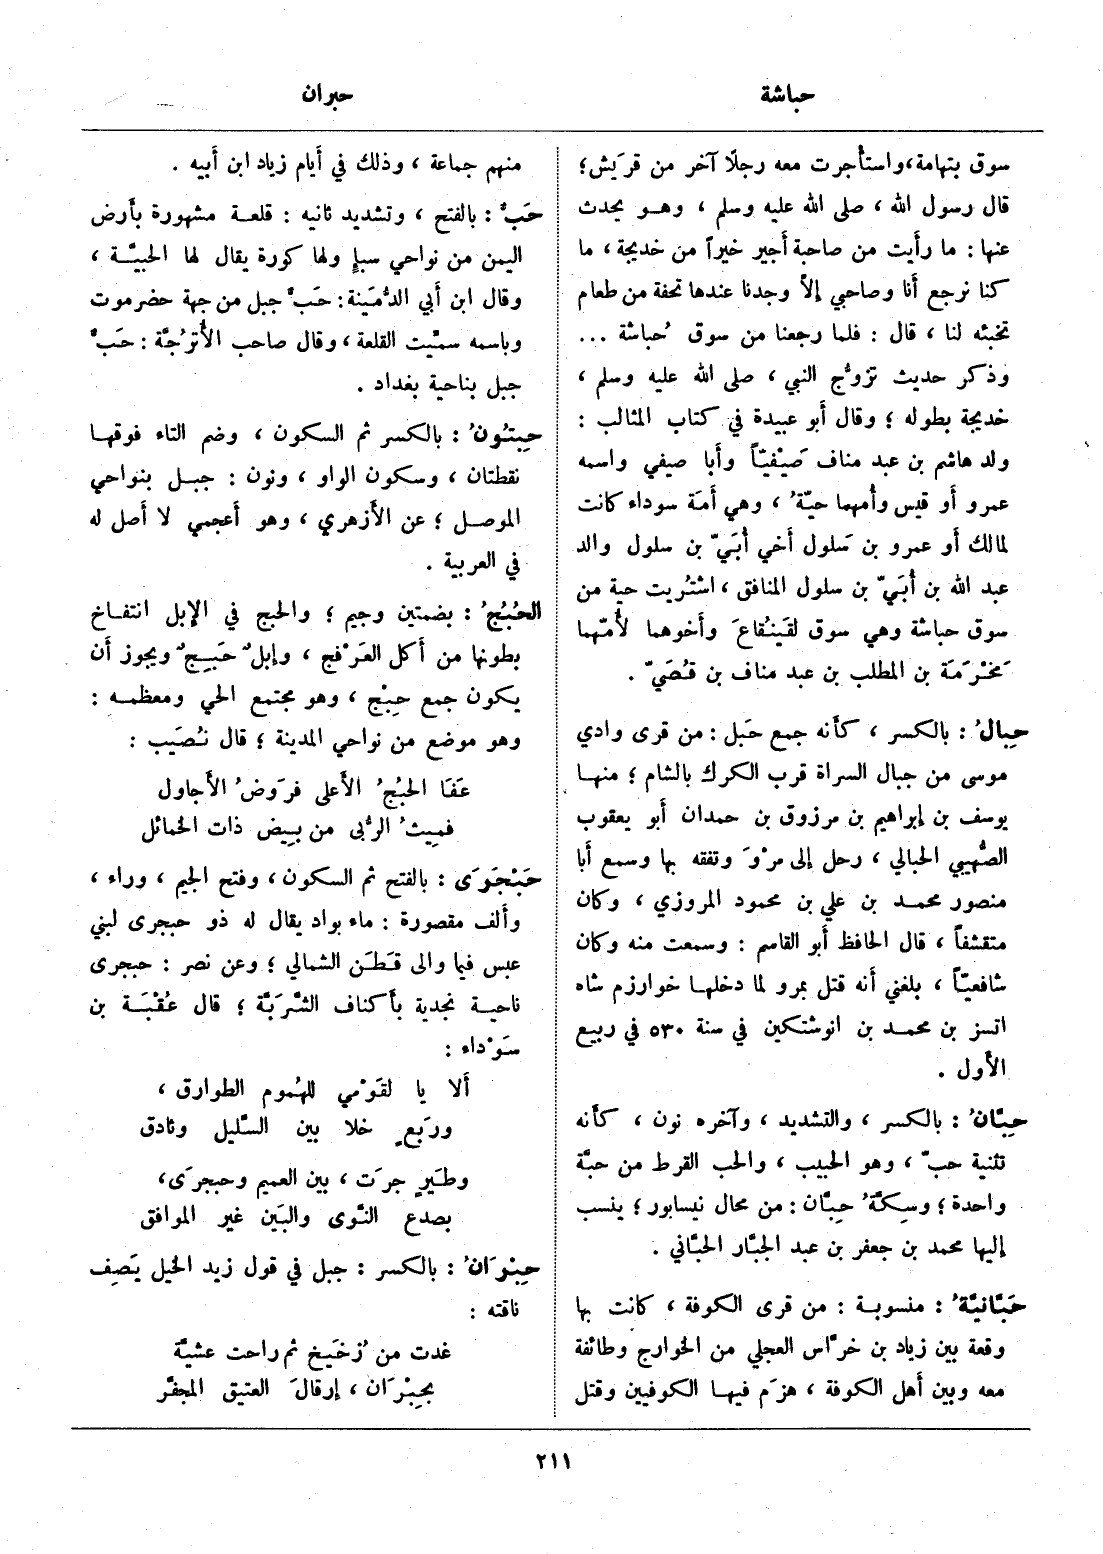 حباشة
حبران
سوق بتهامة، واستأجرت معه رجلًا آخر من قرَيش؛
قال رسول الله ، صلى الله عليه وسلم ، وهو يحدث
عنها : ما رأيت من صاحبة أجير خيراً من خديجة ، ما
كنا نرجع أنا وصاحبي إلاّ وجدنا عندها تحفة من طعام
تخبئه لنا ، قال : فلما رجعنا من سوق حُباشة ...
وذكر حديث تزوُّج النبي ، صلى الله عليه وسلم ،
خديجة بطوله ؛ وقال أبو عبيدة في كتاب المثالب :
ولد هاشم بن عبد مناف صَيْفيّاً وأبا صيفي واسمه
عمرو أو قيس وأمهما حيّةُ ، وهي أمَة سوداء كانت
لمالك أو عمرو بن سَلول أخي أُبَيّ بن سلول والد
عبد الله بن أُبَيّ بن سلول المنافق ، اشتُريت حية من
سوق حباشة وهي سوق لقَينُقاعَ وأخوهما لأُمّهما
مَخْرَمَة بن المطلب بن عبد مناف بن قُصَيّ .
حِبالُ : بالكسر ، كأنه جمع حَبل : من قرى وادي
موسى من جبال السراة قرب الكرك بالشام ؛ منها
يوسف بن إبراهيم بن مرزوق بن حمدان أبو يعقوب
الصُّهيبي الحبالي ، رحل إلى مرْوَ وتفقه بها وسمع أبا
منصور محمد بن علي بن محمود المروزي ، وكان
متقشفاً ، قال الحافظ أبو القاسم : وسمعت منه وكان
شافعيّاً ، بلغني أنه قتل بمرو لما دخلها خوارزم شاه
اتسز بن محمد بن انوشتكين في سنة ٥٣٠ في ربيع
الأول .
حِبّانُ : بالكسر ، والتشديد ، وآخره نون ، كأنه
تثنية حبّ ، وهو الحبيب ، والحب القرط من حبّة
واحدة ؛ وسِكّةُ حِبّان : من محال نيسابور ؛ ينسب
إليها محمد بن جعفر بن عبد الجبّار الحبّاني .
حَبّانيّةُ : منسوبة : من قرى الكوفة ، كانت بها
وقعة بين زياد بن خرّاس العجلي من الخوارج وطائفة
معه وبين أهل الكوفة ، هزَم فيها الكوفيين وقتل
منهم جماعة ، وذلك في أيام زياد ابن أبيه .
حَبٌّ : بالفتح ، وتشديد ثانيه : قلعة مشهورة بأرض
اليمن من نواحي سبإٍ ولها كورة يقال لها الحبيّة ،
وقال ابن أبي الدُّمَينة : حَبٌّ جبل من جهة حضرموت
وباسمه سمّيت القلعة ، وقال صاحب الأُترُجَّة : حَبٌّ
جبل بناحية بغداد .
حِبتُونُ : بالكسر ثم السكون ، وضم التاء فوقها
نقطتان ، وسكون الواو ، ونون : جبل بنواحي
الموصل ؛ عن الأزهري ، وهو أعجمي لا أصل له
في العربية .
الحُبُجُ : بضمتين وجيم ؛ والحبج في الإبل انتفاخ
بطونها من أكل العَرْفج ، وإبلٌ حَبِجٌ ويجوز أن
يكون جمع حِبْج ، وهو مجتمع الحي ومعظمه :
وهو موضع من نواحي المدينة ؛ قال نُصَيب :
عَفَا الحُبُجُ الأعلى فرَوضُ الأجاول
فميثُ الرُّبى من بِيض ذات الخمائل
حَبْجَرَى : بالفتح ثم السكون ، وفتح الجيم ، وراء ،
وألف مقصورة : ماء بواد يقال له ذو حبجرى لبني
عبس فيما والى قَطَن الشمالي ؛ وعن نصر : حبجرى
ناحية نجدية بأكناف الشَّرَبَّة ؛ قال عُقْبَة بن
سَوْداء :
ألا يا لقَوْمي للهُموم الطوارق ،
ورَبعٍ خلا بين السَّليل وثادق
وطَيرٍ جرَت ، بين العميم وحبجرَى،
بصدع النَّوى والبَين غير الموافق
حِبْرَانُ : بالكسر : جبل في قول زيد الخيل يَصِف
ناقته :
غدت من زُخَيخ ثم راحت عشيّة
بحِبْرَان ، إرقالَ العتيق المجفَّر
٢١١